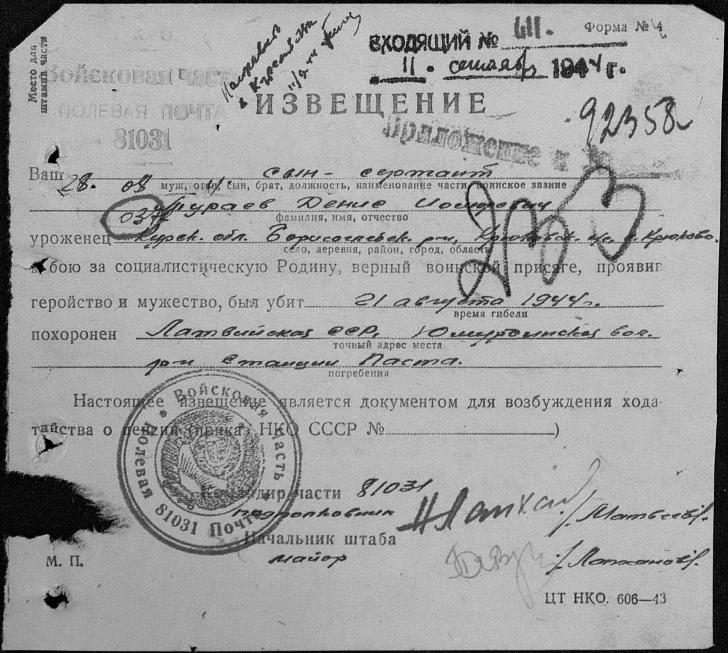 Место для штампа части
Форма № 4
ВХОДЯЩИЙ № 611.
11. сентябр 1944 г.
Войсковая часть
ПОЛЕВАЯ ПОЧТА
81031
ИЗВЕЩЕНИЕ
Приложение к
92358
Ваш сын - сержант
муж, отец, сын, брат, должность, наименование части, воинское звание
28. 03
Тураев Денис
фамилия, имя, отчество
037
253
уроженец Курск. обл. Борисовск. р-н,
село, деревня, район, город, область
в бою за социалистическую Родину, верный воинской присяге, проявив
геройство и мужество, был убит 21 августа 1944 г.
время гибели
похоронен Латвийская ССР,
точный адрес места
р-н Станции Паста.
погребения
Настоящее извещение является документом для возбуждения хода-
тайства о пенсии (приказ НКО СССР № )
Войсковая часть
Полевая Почта 81031
Командир части 81031
подполковник /Матвеев/
Начальник штаба
майор
М. П.
ЦТ НКО. 606—43